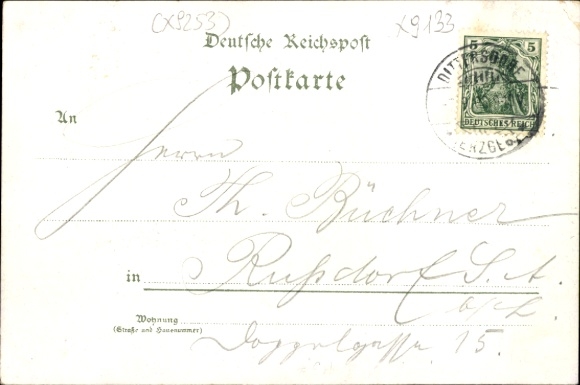 (x9253)
x9133
Deutsche Reichspost
Postkarte
5 5
DITTERSDORF
DEUTSCHES REICH
ERZGEB.
An
Herrn
Th. Büchner
in Rußdorf S. A.
b/L.
Wohnung
(Straße und Hausnummer)
Doppelgasse 15.